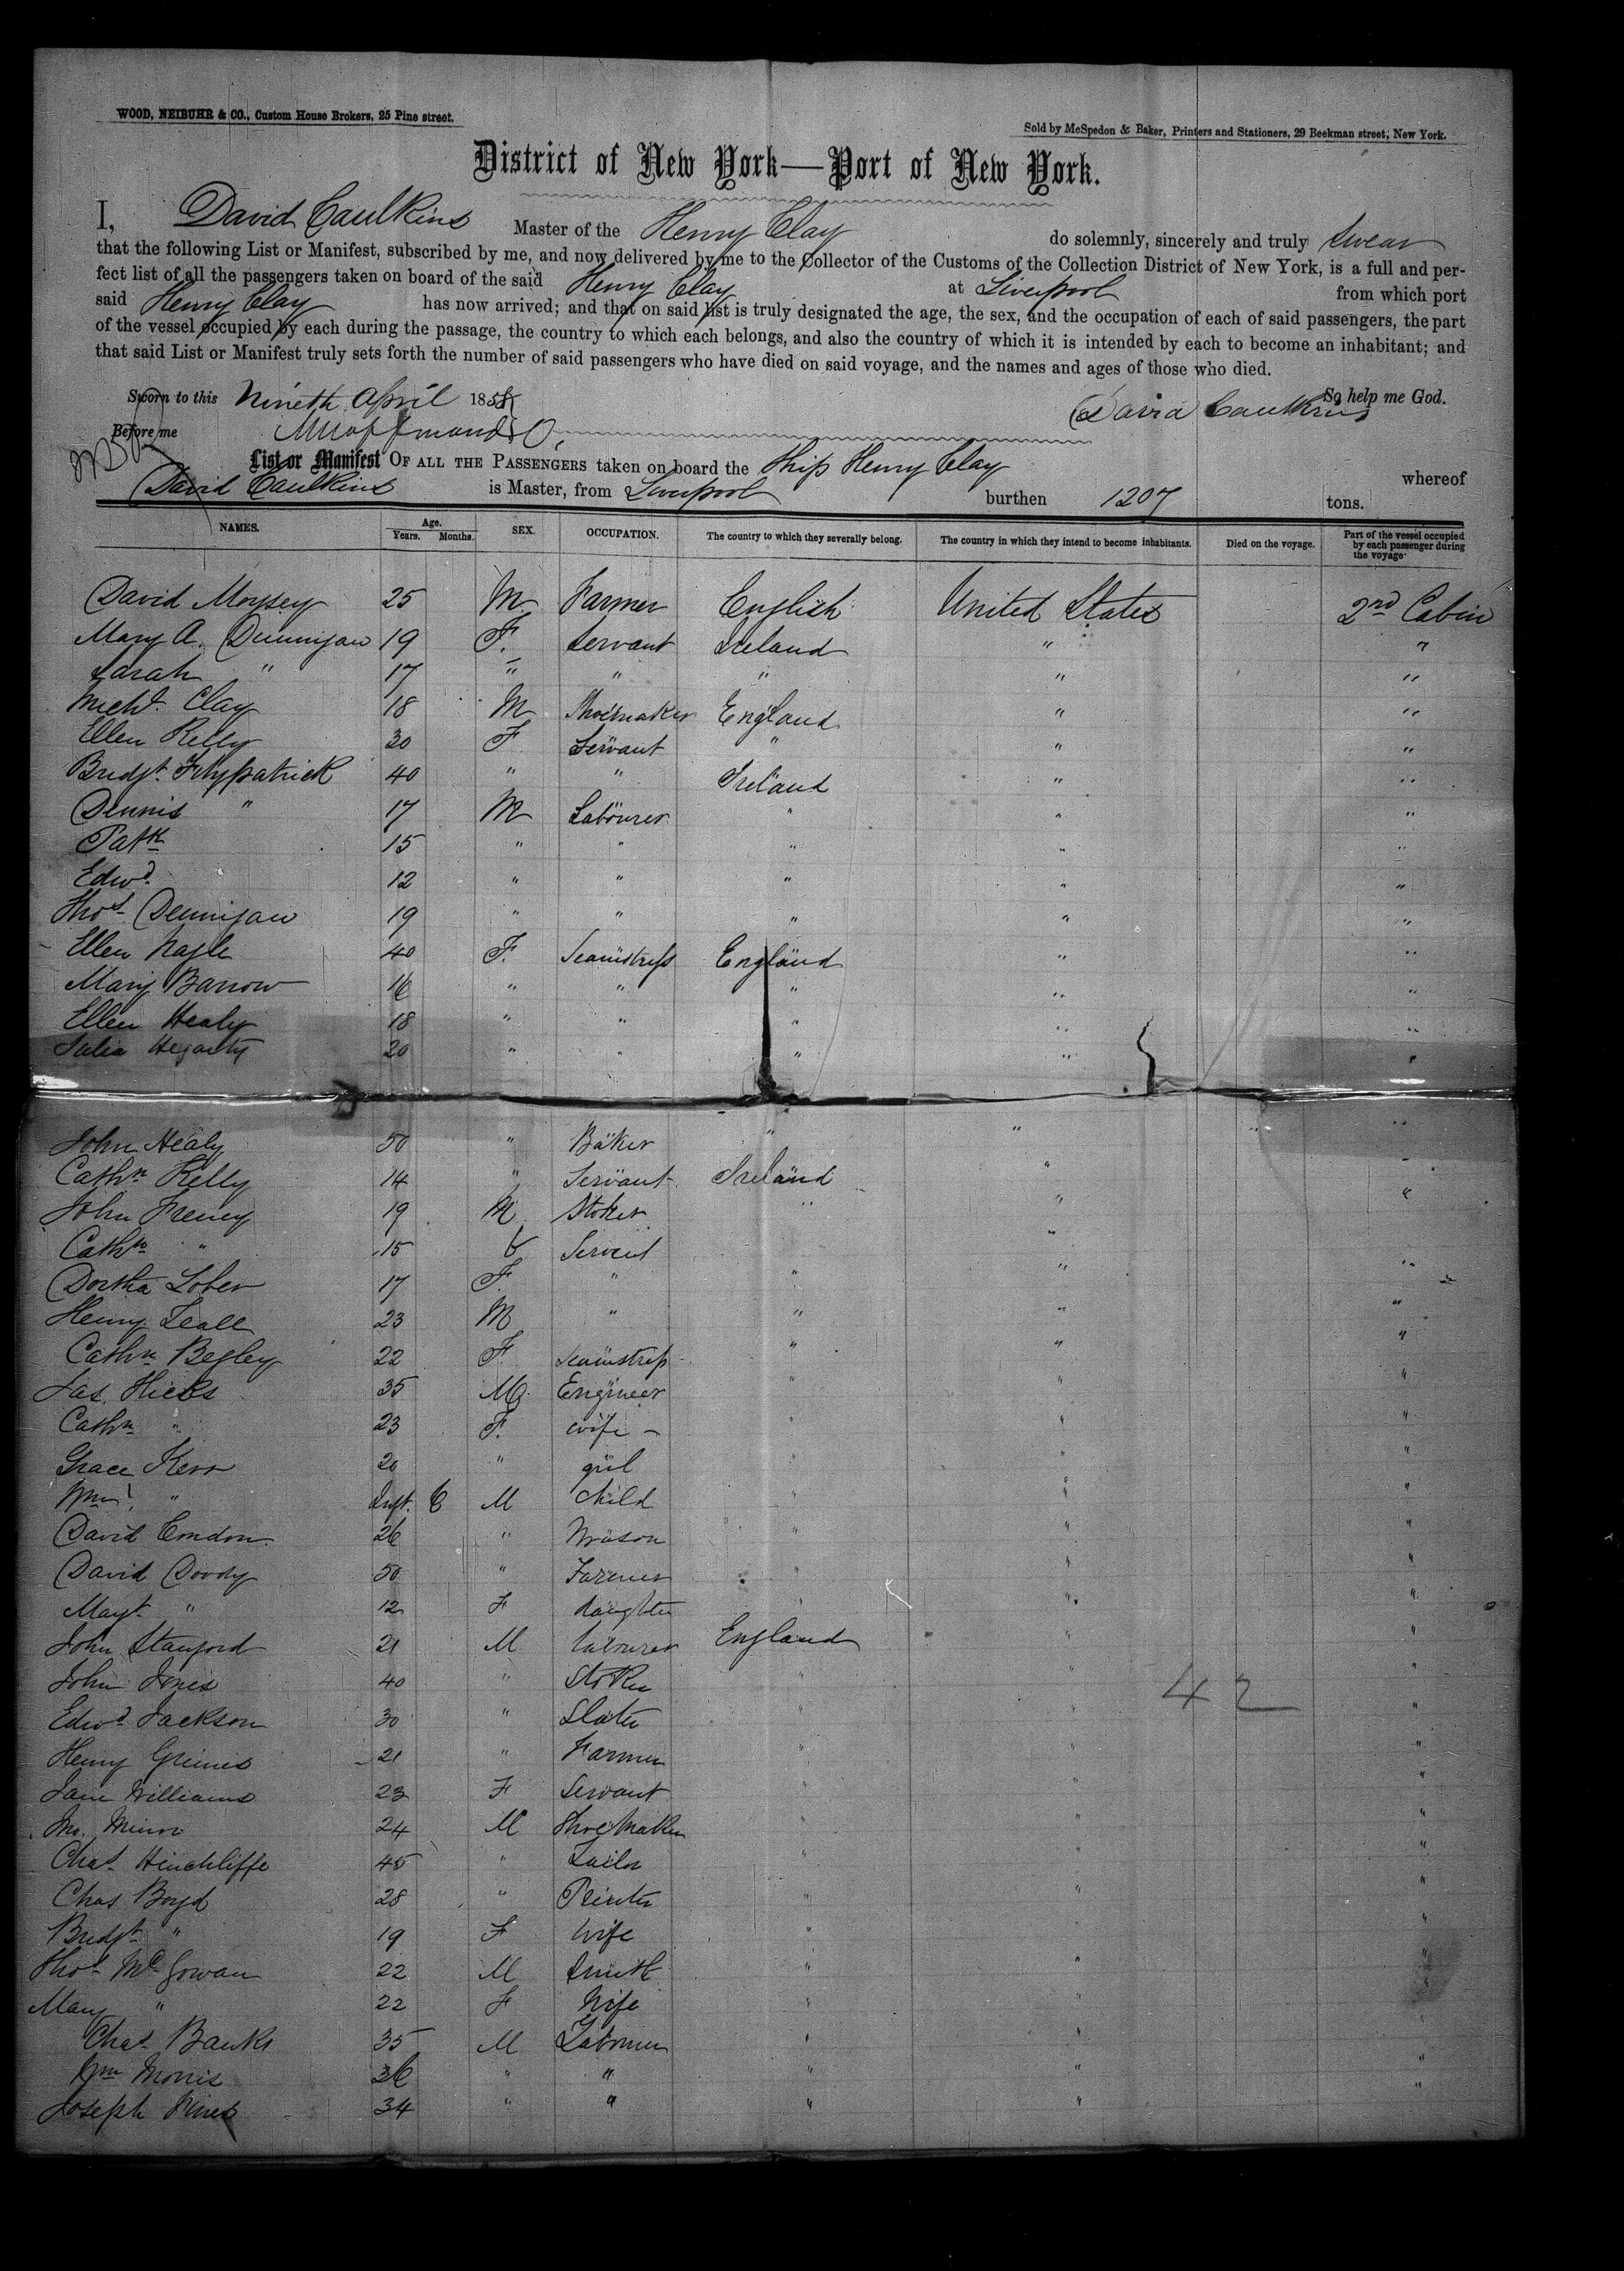 WOOD, NEIBUHR & CO., Custom House Brokers, 25 Pine street.
Sold by McSpedon & Baker, Printers and Stationers, 29 Beekman street, New York.
District of New York—Port of New York.
I, David Caulkins Master of the Henry Clay do solemnly, sincerely and truly swear
that the following List or Manifest, subscribed by me, and now delivered by me to the Collector of the Customs of the Collection District of New York, is a full and per-
fect list of all the passengers taken on board of the said Henry Clay at Liverpool from which port
said Henry Clay has now arrived; and that on said list is truly designated the age, the sex, and the occupation of each of said passengers, the part
of the vessel occupied by each during the passage, the country to which each belongs, and also the country of which it is intended by each to become an inhabitant; and
that said List or Manifest truly sets forth the number of said passengers who have died on said voyage, and the names and ages of those who died.
So help me God.
Sworn to this Nineth April 185
David Caulkins
Before me
List or Manifest OF ALL THE PASSENGERS taken on board the Ship Henry Clay whereof
David Caulkins is Master, from Liverpool burthen 1207 tons.
NAMES. Age. Years. Months. SEX. OCCUPATION. The country to which they severally belong. The country in which they intend to become inhabitants. Died on the voyage. Part of the vessel occupied by each passenger during the voyage
David Moysey 25 M Farmer English United States 2nd Cabin
Mary A. Dunnigan 19 F. Servant Ireland " "
Sarah " 17 " " " " "
Michl. Clay 18 M Shoemaker England " "
Ellen Kelly 30 F Servant " " "
Bridgt. Fitzpatrick 40 " " Ireland " "
Dennis " 17 M Labourer " " "
Patk 15 " " " " "
Edwd. 12 " " " " "
Thos. Dennigan 19 " " " " "
Ellen Nagle 40 F. Seamstress England " "
Mary Barrow 16 " " " " "
Ellen Healy 18 " " " " "
Julia Hegarty 20 " " " " "
John Healy 50 " Baker " " "
Cathn Kelly 14 " Servant Ireland " "
John Freney 19 M Stoker " " "
Cathn " 15 Servant "
Dortha Lober 17 F. " " " "
Henry Leall 23 M " " " "
Cathn Begley 22 F. Seamstress " " "
Jas. Hicks 35 M Engineer " " "
Cathn " 23 F. wife " " "
Grace Kerr 20 " girl " " "
Wm. " Inft. 6 M Child " " "
David Condon 26 " Mason " " "
David Doody 50 " Farmer " " "
Magt. " 12 F daughter " " "
John Stanford 21 M labourer England " "
John Jones 40 " Stoker " " "
42
Edwd. Jackson 30 " Slater " " "
Henry Grimes 21 " Farmer " " "
Jane Williams 23 F Servant " " "
Jno. Minor 24 M Shoe Maker " " "
Chas. Hinchliffe 45 " Tailor " " "
Chas Boyd 28 " Printer " " "
Bridgt " 19 F Wife " " "
Thos. McGowan 22 M Smith " " "
Mary " 22 F Wife " " "
Chas. Banks 35 M Labourer " " "
Wm Morris 36 " " " " "
Joseph 34 " " " "